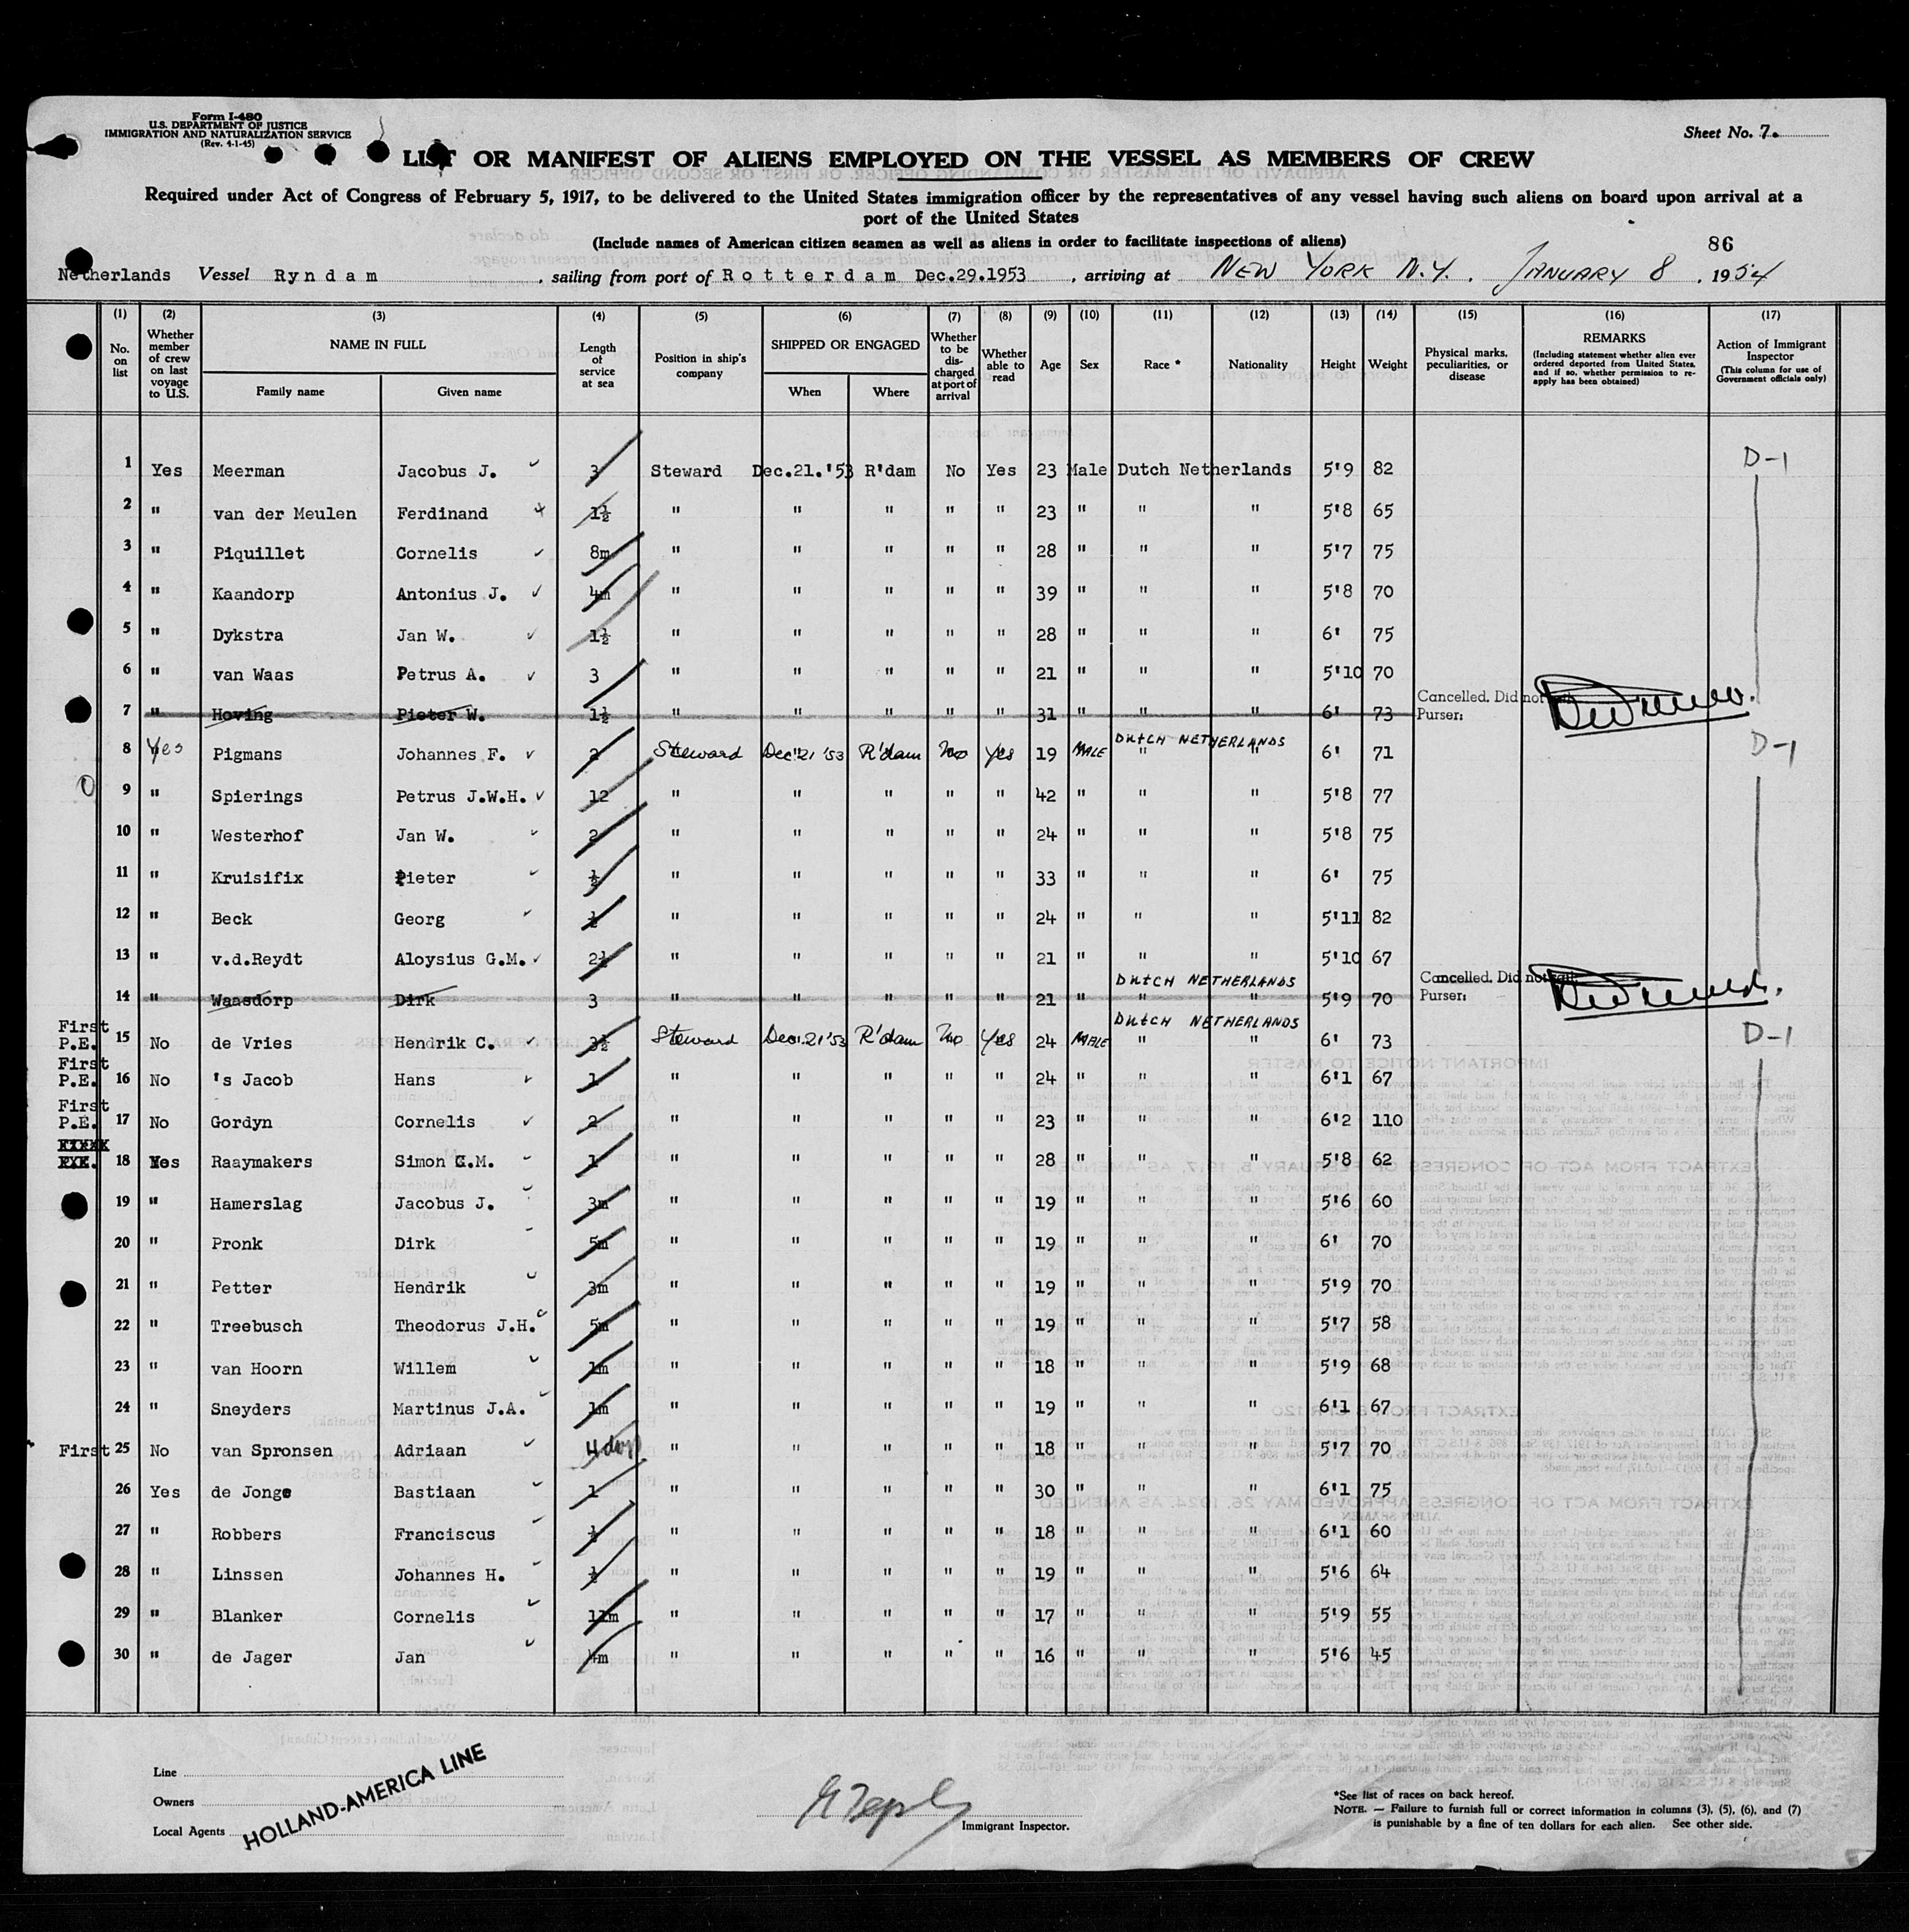 Form I-480
U.S. DEPARTMENT OF JUSTICE
IMMIGRATION AND NATURALIZATION SERVICE
(Rev. 4-1-45)
Sheet No. 7.
LIST OR MANIFEST OF ALIENS EMPLOYED ON THE VESSEL AS MEMBERS OF CREW
Required under Act of Congress of February 5, 1917, to be delivered to the United States immigration officer by the representatives of any vessel having such aliens on board upon arrival at a
port of the United States
(Include names of American citizen seamen as well as aliens in order to facilitate inspections of aliens)
86
Netherlands Vessel Ryndam, sailing from port of Rotterdam Dec.29.1953, arriving at NEW YORK N.Y. JANUARY 8, 1954
(1) (2) (3) (4) (5) (6) (7) (8) (9) (10) (11) (12) (13) (14) (15) (16) (17)
No. on list
Whether member of crew on last voyage to U.S.
NAME IN FULL
Family name Given name
Length of service at sea
Position in ship's company
SHIPPED OR ENGAGED
When Where
Whether to be discharged at port of arrival
Whether able to read
Age Sex Race * Nationality Height Weight
Physical marks, peculiarities, or disease
REMARKS
(Including statement whether alien ever ordered deported from United States, and if so, whether permission to re-apply has been obtained)
Action of Immigrant Inspector
(This column for use of Government officials only)
1 Yes Meerman Jacobus J. 3 Steward Dec.21.'53 R'dam No Yes 23 Male Dutch Netherlands 5'9 82 D-1
2 " van der Meulen Ferdinand 1½ " " " " " 23 " " " 5'8 65
3 " Piquillet Cornelis 8m " " " " " 28 " " " 5'7 75
4 " Kaandorp Antonius J. 4m " " " " " 39 " " " 5'8 70
5 " Dykstra Jan W. 1½ " " " " " 28 " " " 6' 75
6 " van Waas Petrus A. 3 " " " " " 21 " " " 5'10 70
7 " Hoving Pieter W. 1½ " " " " " 31 " " " 6' 73 Cancelled. Did not
Purser:
8 Yes Pigmans Johannes F. 2 Steward Dec 21 '53 R'dam No Yes 19 MALE DUTCH NETHERLANDS " " 6' 71 D-1
9 " Spierings Petrus J.W.H. 12 " " " " " 42 " " " 5'8 77
10 " Westerhof Jan W. 2 " " " " " 24 " " " 5'8 75
11 " Kruisifix Pieter ½ " " " " " 33 " " " 6' 75
12 " Beck Georg ½ " " " " " 24 " " " 5'11 82
13 " v.d.Reydt Aloysius G.M. 2½ " " " " " 21 " " " 5'10 67
14 " Waasdorp Dirk 3 " " " " " 21 " DUTCH NETHERLANDS " " 5'9 70 Cancelled. Did not
Purser:
First P.E. 15 No de Vries Hendrik C. 3½ Steward Dec.21'53 R'dam No Yes 24 MALE DUTCH NETHERLANDS " " 6' 73 D-1
First P.E. 16 No 's Jacob Hans 1 " " " " " 24 " " " 6'1 67
First P.E. 17 No Gordyn Cornelis 2 " " " " " 23 " " " 6'2 110
18 Yes Raaymakers Simon C.M. 1 " " " " " 28 " " " 5'8 62
19 " Hamerslag Jacobus J. 3m " " " " " 19 " " " 5'6 60
20 " Pronk Dirk 5m " " " " " 19 " " " 6' 70
21 " Petter Hendrik 3m " " " " " 19 " " " 5'9 70
22 " Treebusch Theodorus J.H. 5m " " " " " 19 " " " 5'7 58
23 " van Hoorn Willem 1m " " " " " 18 " " " 5'9 68
24 " Sneyders Martinus J.A. 1m " " " " " 19 " " " 6'1 67
First 25 No van Spronsen Adriaan 4 days " " " " " 18 " " " 5'7 70
26 Yes de Jonge Bastiaan 1 " " " " " 30 " " " 6'1 75
27 " Robbers Franciscus ½ " " " " " 18 " " " 6'1 60
28 " Linssen Johannes H. ½ " " " " " 19 " " " 5'6 64
29 " Blanker Cornelis 11m " " " " " 17 " " " 5'9 55
30 " de Jager Jan 4m " " " " " 16 " " " 5'6 45
Line
Owners
Local Agents
HOLLAND-AMERICA LINE
Immigrant Inspector.
*See list of races on back hereof.
NOTE. — Failure to furnish full or correct information in columns (3), (5), (6), and (7)
is punishable by a fine of ten dollars for each alien. See other side.